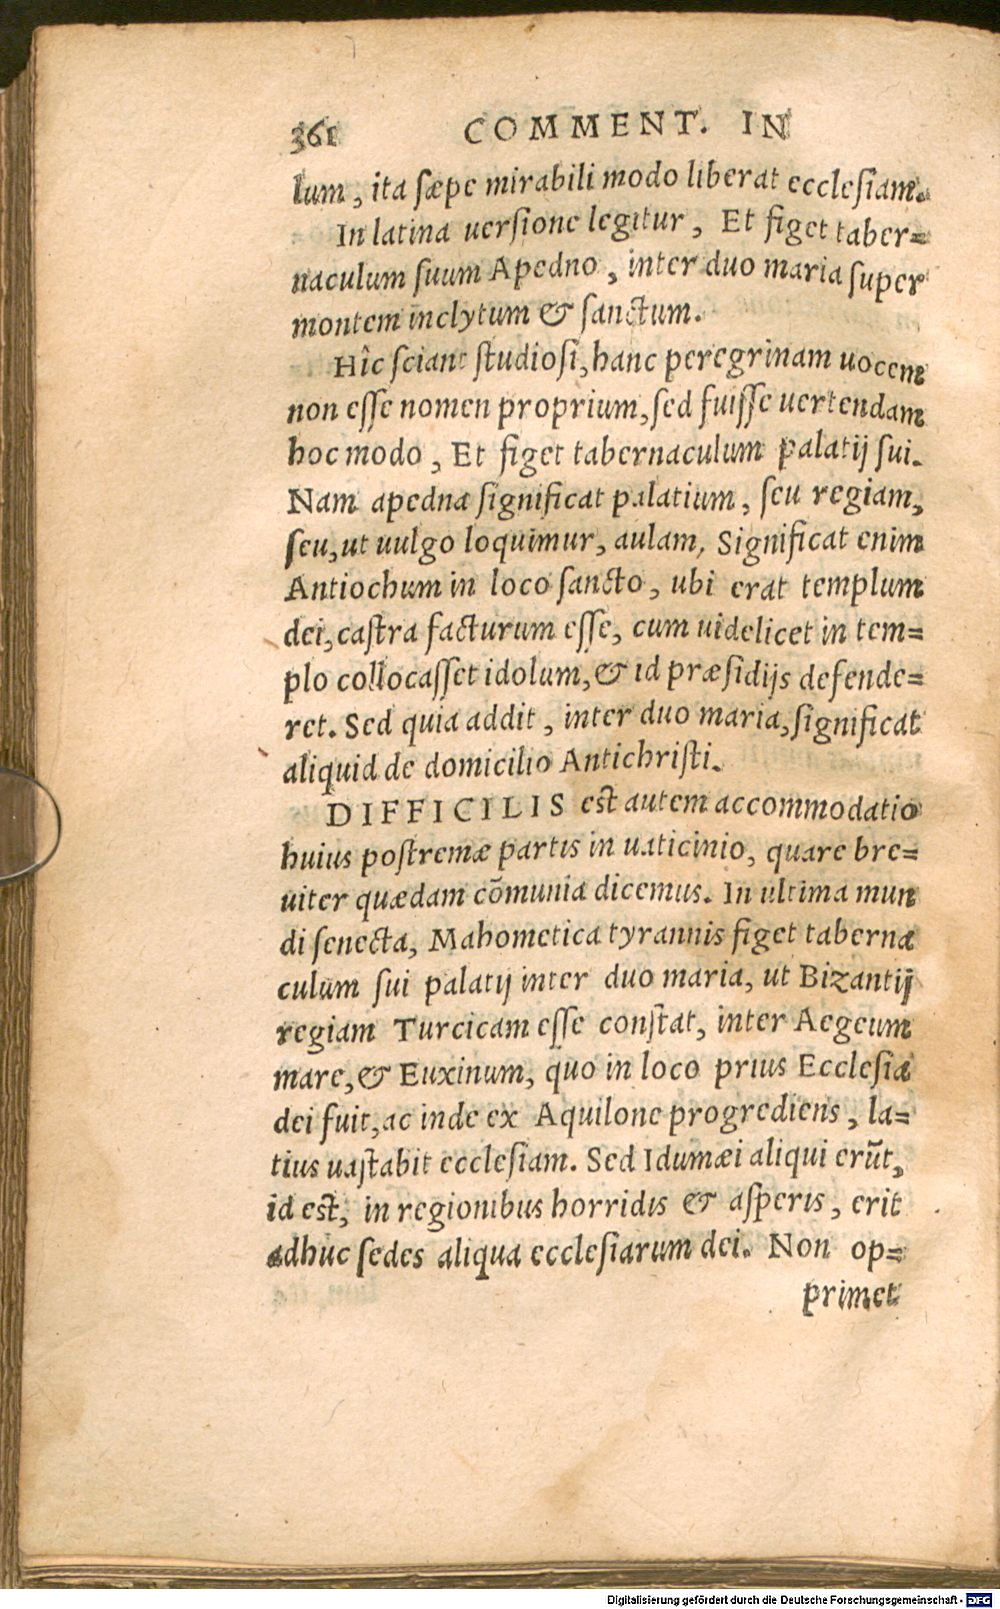 361 COMMENT. IN
lum, ita sæpe mirabili modo liberat ecclesiam.
In latina uersione legitur, Et figet taber=
naculum suum Apedno, inter duo maria super
montem inclytum & sanctum.
Hîc sciant studiosi, hanc peregrinam uocem
non esse nomen proprium, sed fuisse uertendam
hoc modo, Et figet tabernaculum palatij sui.
Nam apedna significat palatium, seu regiam,
seu, ut uulgo loquimur, aulam, Significat enim
Antiochum in loco sancto, ubi erat templum
dei, castra facturum esse, cum uidelicet in tem=
plo collocasset idolum, & id præsidijs defende=
ret. Sed quia addit, inter duo maria, significat
aliquid de domicilio Antichristi.
DIFFICILIS est autem accommodatio
huius postremæ partis in uaticinio, quare bre=
uiter quædam cōmunia dicemus. In ultima mun
di senecta, Mahometica tyrannis figet taberna
culum sui palatij inter duo maria, ut Bizantij
regiam Turcicam esse constat, inter Aegeum
mare, & Euxinum, quo in loco prius Ecclesia
dei fuit, ac inde ex Aquilone progrediens, la=
tius uastabit ecclesiam. Sed Idumæi aliqui erūt,
id est, in regionibus horridis & asperis, erit
adhuc sedes aliqua ecclesiarum dei. Non op=
primet
Digitalisierung gefördert durch die Deutsche Forschungsgemeinschaft - DFG